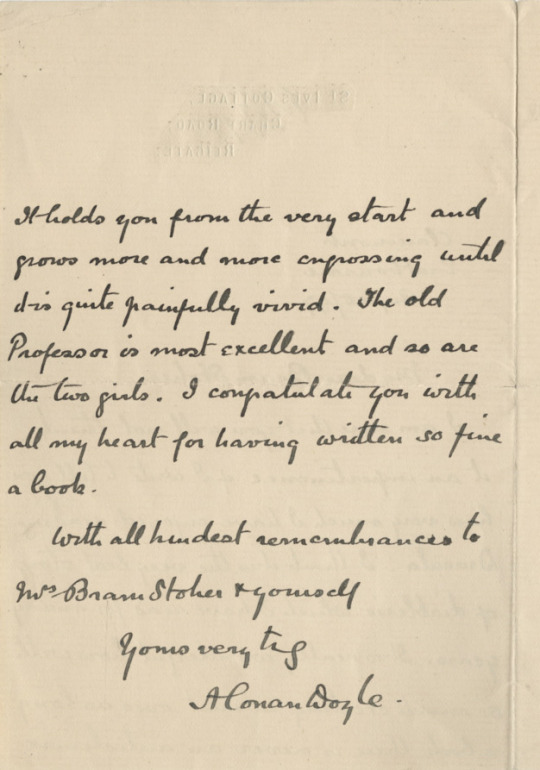 It holds you from the very start and
grows more and more engrossing until
it is quite painfully vivid. The old
Professor is most excellent and so are
the two girls. I congratulate you with
all my heart for having written so fine
a book.
With all kindest remembrances to
Mrs Bram Stoker & yourself
Yours very
A Conan Doyle.